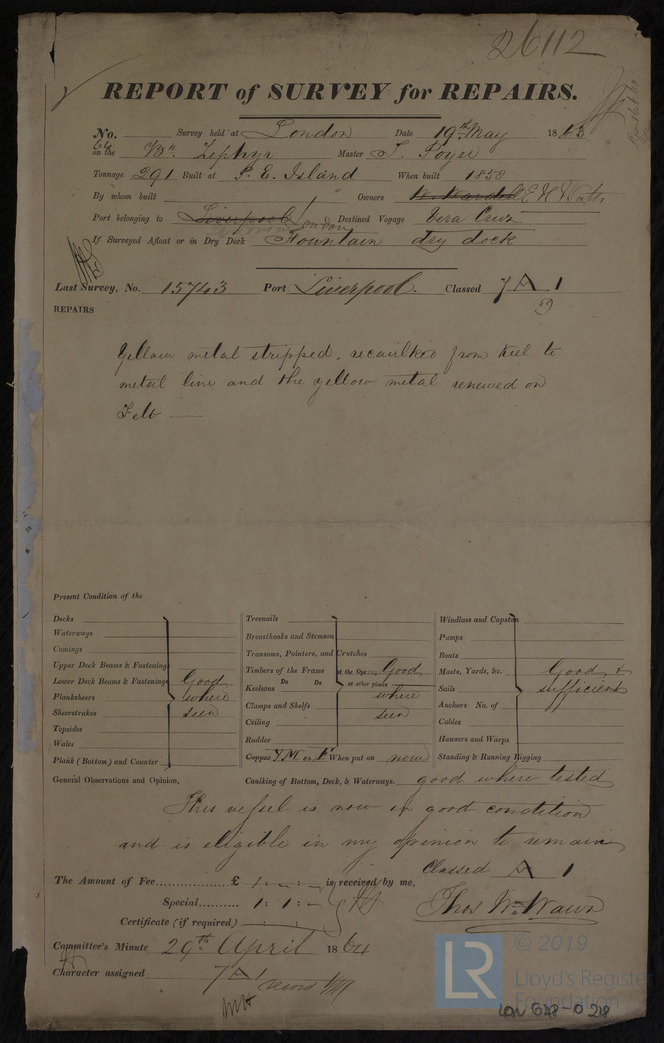 26112
REPORT of SURVEY for REPAIRS.
No. Survey held at London Date 19th May 1863
64
on the Bk. Zephyr Master J. Poyer
Tonnage 291 Built at P. E. Island When built 1858
By whom built Owners E H Watts
Port belonging to Liverpool London Destined Voyage Vera Cruz
If Surveyed Afloat or in Dry Dock Fountain dry dock
Last Survey, No. 15743 Port Liverpool. Classed 7 A 1
59
REPAIRS
Yellow metal stripped, recaulked from keel to
metal line and the yellow metal renewed on
Felt
Present Condition of the
Decks
Waterways
Comings
Upper Deck Beams & Fastenings
Lower Deck Beams & Fastenings
Planksheers
Sheerstrakes
Topsides
Wales
Plank (Bottom) and Counter
Good
where
seen
Treenails
Breasthooks and Stemson
Transoms, Pointers, and Crutches
Timbers of the Frame at the Ope
Keelsons Do Do at other places
Clamps and Shelfs
Ceiling
Rudder
Good
where
seen
Copper Y M or When put on now
Windlass and Capstan
Pumps
Boats
Masts, Yards, &c.
Sails
Anchors No. of
Cables
Hawsers and Warps
Standing & Running Rigging
Good &
sufficient
General Observations and Opinion, Caulking of Bottom, Deck, & Waterways. good where tested
This vessel is now in good condition
and is eligible in my opinion to remain
Classed A 1
The Amount of Fee £ 1 : - : - is received by me,
Special 1 : 1 : -
Certificate (if required)
Thos Wm Wawn
Committee's Minute 29th April 1864
Character assigned 7 A 1
record YM
LR
© 2019
Lloyd's Register
Foundation
LON 648-0218